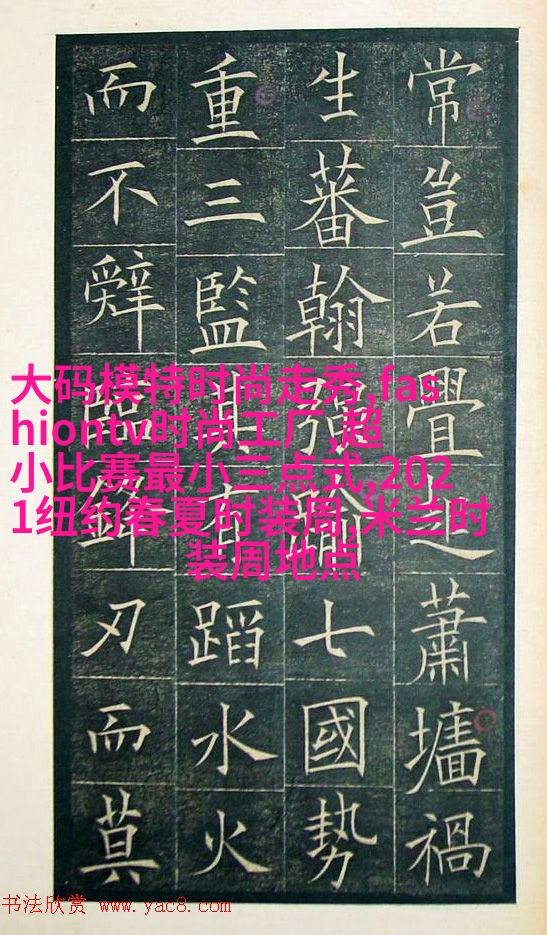 常豈若疊起蕭墻禍
生蕃翰強踰七國勢
重三監其有蹈水火
而不辭臨鋒刃而莫
大码模特时尚走秀,fas
hiontv时尚工厂,超
小比赛最小三点式,202
1纽约春夏时装周,米兰时
装周地点
书法欣赏 www.yac8.com